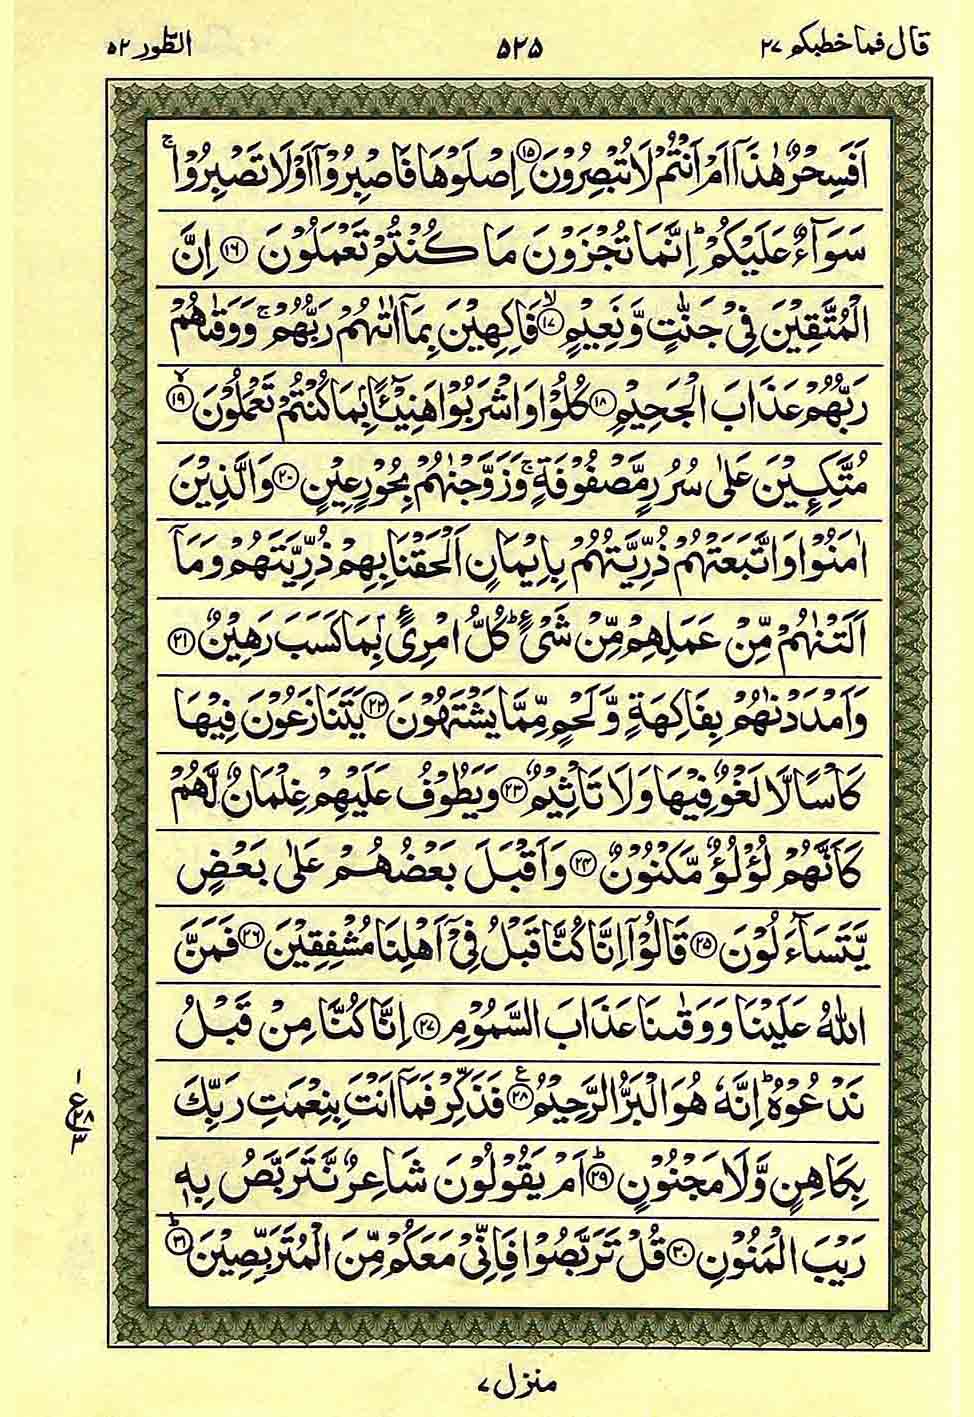 قال فما خطبكم ٢٧ ٥٢٥ الطور ٥٢
اَفَسِحۡرٌ هٰذَاۤ اَمۡ اَنۡتُمۡ لَا تُبۡصِرُوۡنَ ۞١٥ اِصۡلَوۡهَا فَاصۡبِرُوۡۤا اَوۡ لَا تَصۡبِرُوۡا ۚ
سَوَآءٌ عَلَيۡكُمۡ ؕ اِنَّمَا تُجۡزَوۡنَ مَا كُنۡتُمۡ تَعۡمَلُوۡنَ ۞١٦ اِنَّ
الۡمُتَّقِيۡنَ فِىۡ جَنّٰتٍ وَّنَعِيۡمٍ ۙ ۞١٧ فَاكِهِيۡنَ بِمَاۤ اٰتٰٮهُمۡ رَبُّهُمۡ ۚ وَوَقٰٮهُمۡ
رَبُّهُمۡ عَذَابَ الۡجَحِيۡمِ ۞١٨ كُلُوۡا وَاشۡرَبُوۡا هَنِيۡٓـئًا ۢ بِمَا كُنۡتُمۡ تَعۡمَلُوۡنَ ۙ ۞١٩
مُتَّكِـِٕيۡنَ عَلٰى سُرُرٍ مَّصۡفُوۡفَةٍ ۚ وَزَوَّجۡنٰهُمۡ بِحُوۡرٍ عِيۡنٍ ۞٢٠ وَالَّذِيۡنَ
اٰمَنُوۡا وَاتَّبَعَتۡهُمۡ ذُرِّيَّتُهُمۡ بِاِيۡمَانٍ اَلۡحَقۡنَا بِهِمۡ ذُرِّيَّتَهُمۡ وَمَاۤ
اَلَـتۡنٰهُمۡ مِّنۡ عَمَلِهِمۡ مِّنۡ شَىۡءٍ ؕ كُلُّ امۡرِیءٍۢ بِمَا كَسَبَ رَهِيۡنٌ ۞٢١
وَاَمۡدَدۡنٰهُمۡ بِفَاكِهَةٍ وَّلَحۡمٍ مِّمَّا يَشۡتَهُوۡنَ ۞٢٢ يَـتَـنَازَعُوۡنَ فِيۡهَا
كَاۡسًا لَّا لَغۡوٌ فِيۡهَا وَلَا تَاۡثِيۡمٌ ۞٢٣ وَيَطُوۡفُ عَلَيۡهِمۡ غِلۡمَانٌ لَّهُمۡ
كَاَنَّهُمۡ لُـؤۡلُـؤٌ مَّكۡنُوۡنٌ ۞٢٤ وَاَقۡبَلَ بَعۡضُهُمۡ عَلٰى بَعۡضٍ
يَّتَسَآءَلُوۡنَ ۞٢٥ قَالُوۡۤا اِنَّا كُـنَّا قَبۡلُ فِىۡۤ اَهۡلِنَا مُشۡفِقِيۡنَ ۞٢٦ فَمَنَّ
اللّٰهُ عَلَيۡنَا وَوَقٰٮنَا عَذَابَ السَّمُوۡمِ ۞٢٧ اِنَّا كُـنَّا مِنۡ قَبۡلُ
نَدۡعُوۡهُ ؕ اِنَّهٗ هُوَ الۡبَـرُّ الرَّحِيۡمُ ۞٢٨ ع فَذَكِّرۡ فَمَاۤ اَنۡتَ بِنِعۡمَتِ رَبِّكَ
١ ع ٢٨ ٣
بِكَاهِنٍ وَّلَا مَجۡنُوۡنٍ ؕ ۞٢٩ اَمۡ يَقُوۡلُوۡنَ شَاعِرٌ نَّتَـرَبَّصُ بِهٖ
رَيۡبَ الۡمَنُوۡنِ ۞٣٠ قُلۡ تَرَبَّصُوۡا فَاِنِّىۡ مَعَكُمۡ مِّنَ الۡمُتَـرَبِّصِيۡنَ ؕ ۞٣١
منزل ٧